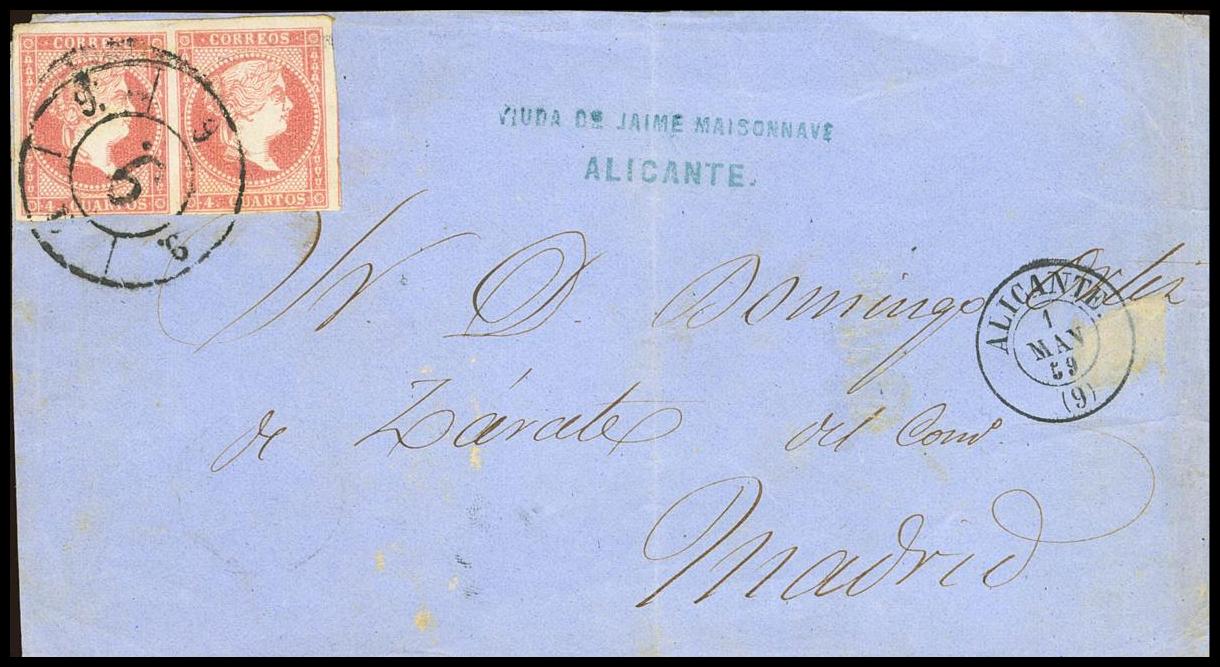 CORREOS CORREOS
4 CUARTOS 4 CUARTOS
VIUDA DE JAIME MAISONNAVE
ALICANTE.
Sr D. Domingo Ortiz
de Zárate del Comº
Madrid
ALICANTE.
1
MAY
59
(9)